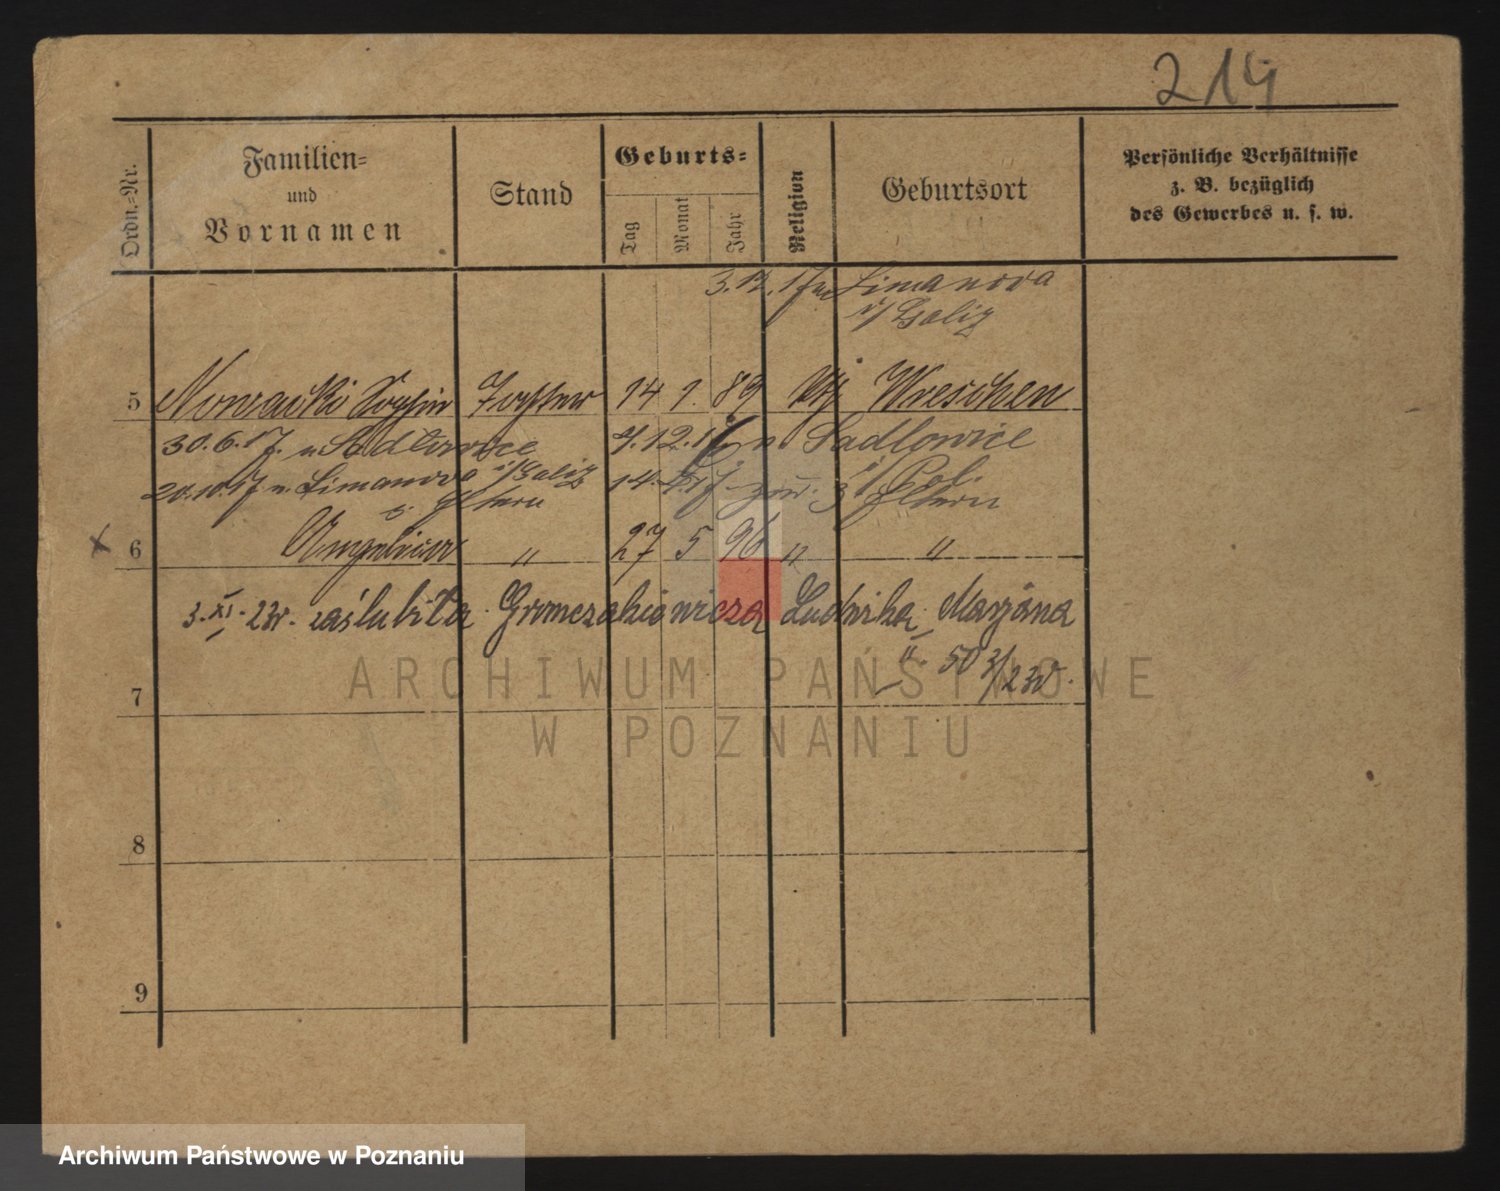 214
Ordn.-Nr.
Familien-
und
Vornamen
Stand
Geburts-
Tag
Monat
Jahr
Religion
Geburtsort
Persönliche Verhältnisse
z. B. bezüglich
des Gewerbes u. s. w.
3.12.17 n Limanova
i/Galiz
5 Nowacki Sophie Tochter 14 1. 89 kth Wreschen
30.6.17. n. Sadlowice 4.12.16 n Sadlowice
20.10.17 n. Limanova i/Galiz 14. 17 zur. z i/Pol.
z. Eltern Eltern
x 6 Angelica " 27 5 96 " "
3.XI.23r. zaślubiła Gromczakiewicza Ludwika Marjana
II. 50 3/23r.
7
8
9
ARCHIWUM PAŃSTWOWE
W POZNANIU
Archiwum Państwowe w Poznaniu